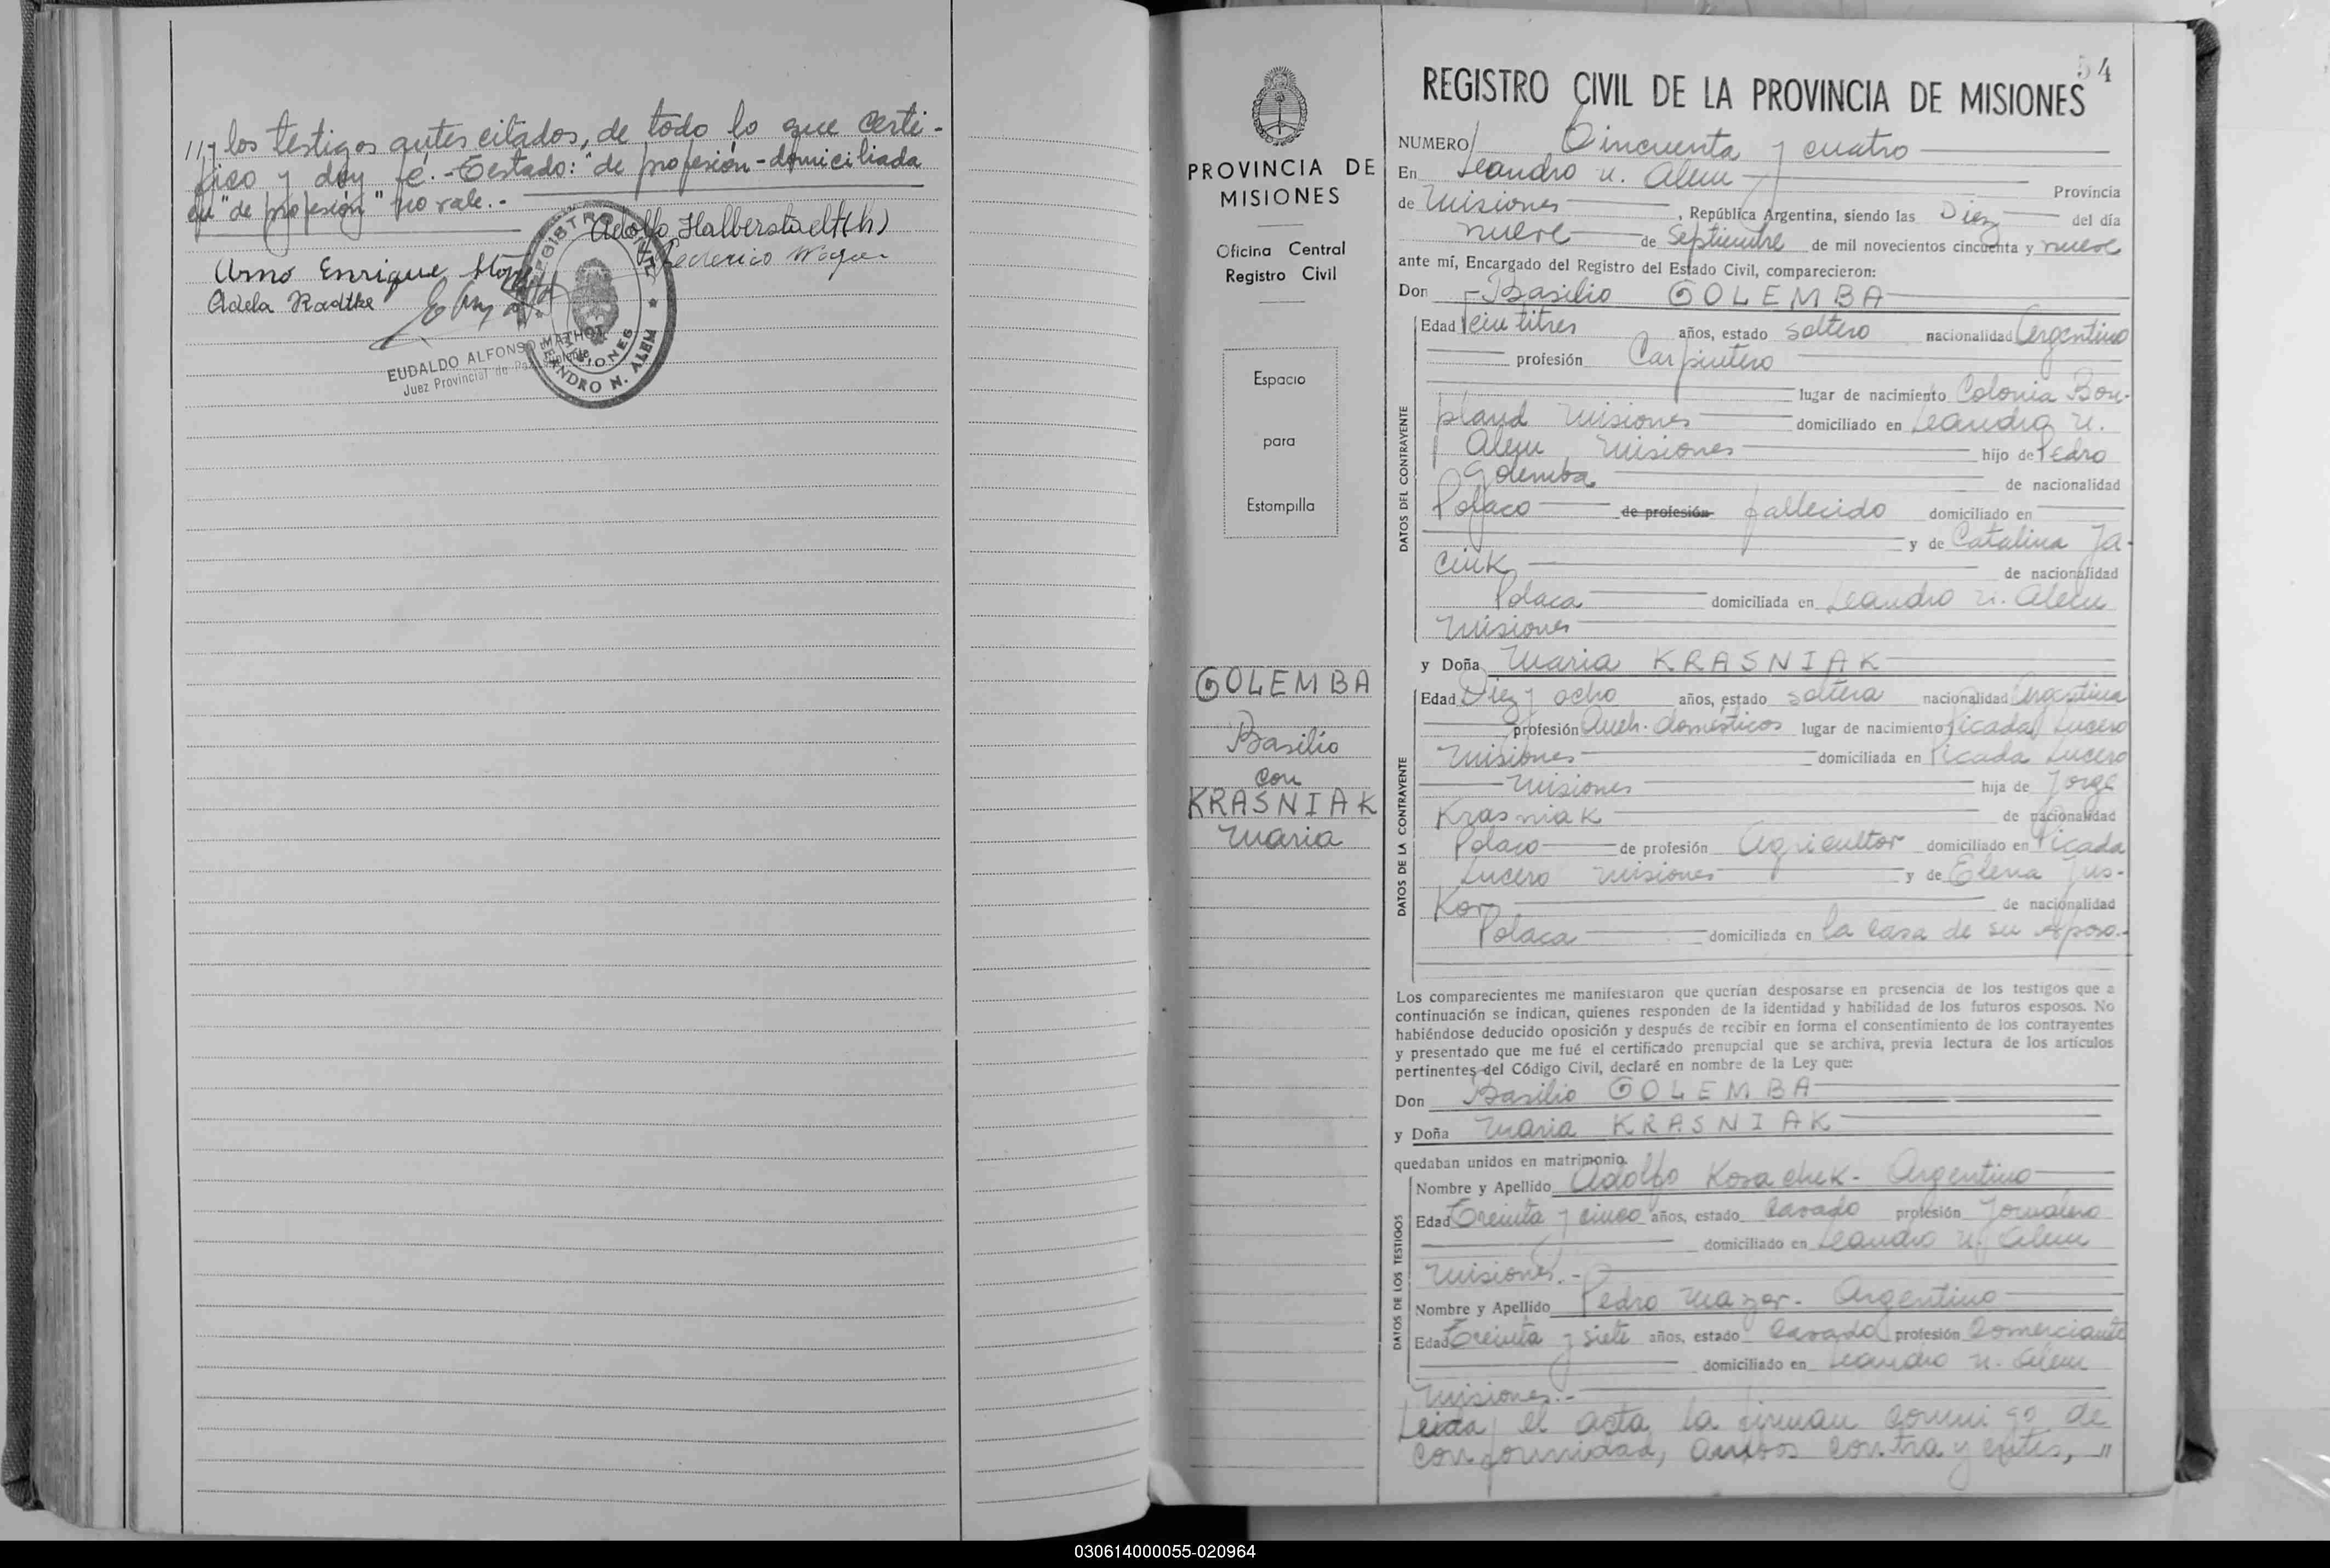 //y los testigos antes citados, de todo lo que certi-
fico y doy fé.- Testado: "de profesión - domiciliada
en "de profesión" no vale.-
Adolfo Halberstadt (h)
Federico Wagner
Arno Enrique
Adela Radtke
EUDALDO ALFONSO MATHOT
Juez Provincial de Paz
REGISTRO CIVIL
LEANDRO N. ALEM
MISIONES
PROVINCIA DE
MISIONES
Oficina Central
Registro Civil
Espacio
para
Estampilla
GOLEMBA
Basilio
con
KRASNIAK
Maria
54
REGISTRO CIVIL DE LA PROVINCIA DE MISIONES
NUMERO Cincuenta y cuatro
En Leandro N. Alem Provincia
de Misiones, República Argentina, siendo las Diez del día
nueve de Septiembre de mil novecientos cincuenta y nueve
ante mí, Encargado del Registro del Estado Civil, comparecieron:
Don Basilio GOLEMBA
DATOS DEL CONTRAYENTE
Edad Veintitres años, estado soltero nacionalidad Argentino
profesión Carpintero
lugar de nacimiento Colonia Bon-
pland Misiones domiciliado en Leandro N.
Alem Misiones hijo de Pedro
Golemba de nacionalidad
Polaco de profesión fallecido domiciliado en
y de Catalina Ja-
ciuk de nacionalidad
Polaca domiciliada en Leandro N. Alem
Misiones
y Doña Maria KRASNIAK
DATOS DE LA CONTRAYENTE
Edad Diez y ocho años, estado soltera nacionalidad Argentina
profesión Queh. domésticos lugar de nacimiento Picada Lucero
Misiones domiciliada en Picada Lucero
Misiones hija de Jorge
Krasniak de nacionalidad
Polaco de profesión Agricultor domiciliado en Picada
Lucero Misiones y de Elena Jus-
Kow de nacionalidad
Polaca domiciliada en la casa de su esposo.-
Los comparecientes me manifestaron que querían desposarse en presencia de los testigos que a
continuación se indican, quienes responden de la identidad y habilidad de los futuros esposos. No
habiéndose deducido oposición y después de recibir en forma el consentimiento de los contrayentes
y presentado que me fué el certificado prenupcial que se archiva, previa lectura de los artículos
pertinentes del Código Civil, declaré en nombre de la Ley que:
Don Basilio GOLEMBA
y Doña Maria KRASNIAK
quedaban unidos en matrimonio.
DATOS DE LOS TESTIGOS
Nombre y Apellido Adolfo Kosachek - Argentino
Edad Treinta y cinco años, estado Casado profesión Jornalero
domiciliado en Leandro N. Alem
Misiones.-
Nombre y Apellido Pedro Mazer - Argentino
Edad Treinta y siete años, estado Casado profesión Comerciante
domiciliado en Leandro N. Alem
Misiones.-
Leida el acta la firman conmigo de
conformidad, ambos contrayentes, //
030614000055-020964